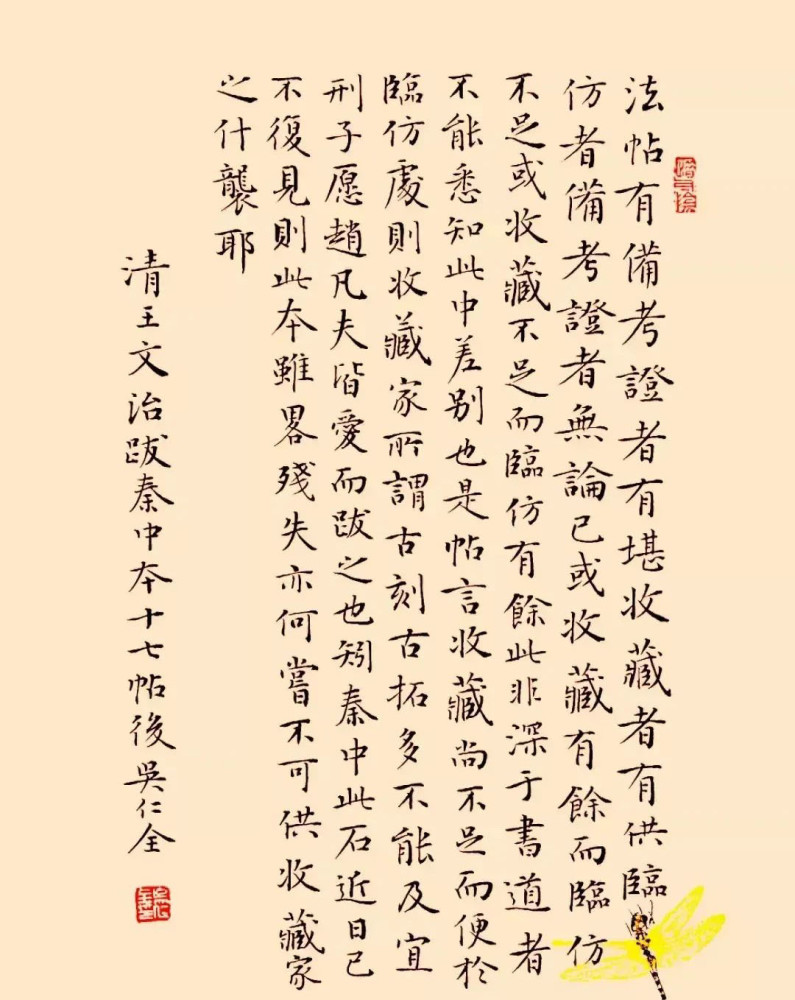 法帖有備考證者有堪收藏者有供臨
仿者備考證者無論已或收藏有餘而臨仿
不足或收藏不足而臨仿有餘此非深于書道者
不能悉知此中差别也是帖言收藏尚不足而便於
臨仿處則收藏家所謂古刻古拓多不能及宜
刑子愿趙凡夫皆愛而跋之也矧秦中此石近日已
不復見則此本雖畧殘失亦何嘗不可供收藏家
之什襲耶
清王文治跋秦中本十七帖後吳仁全